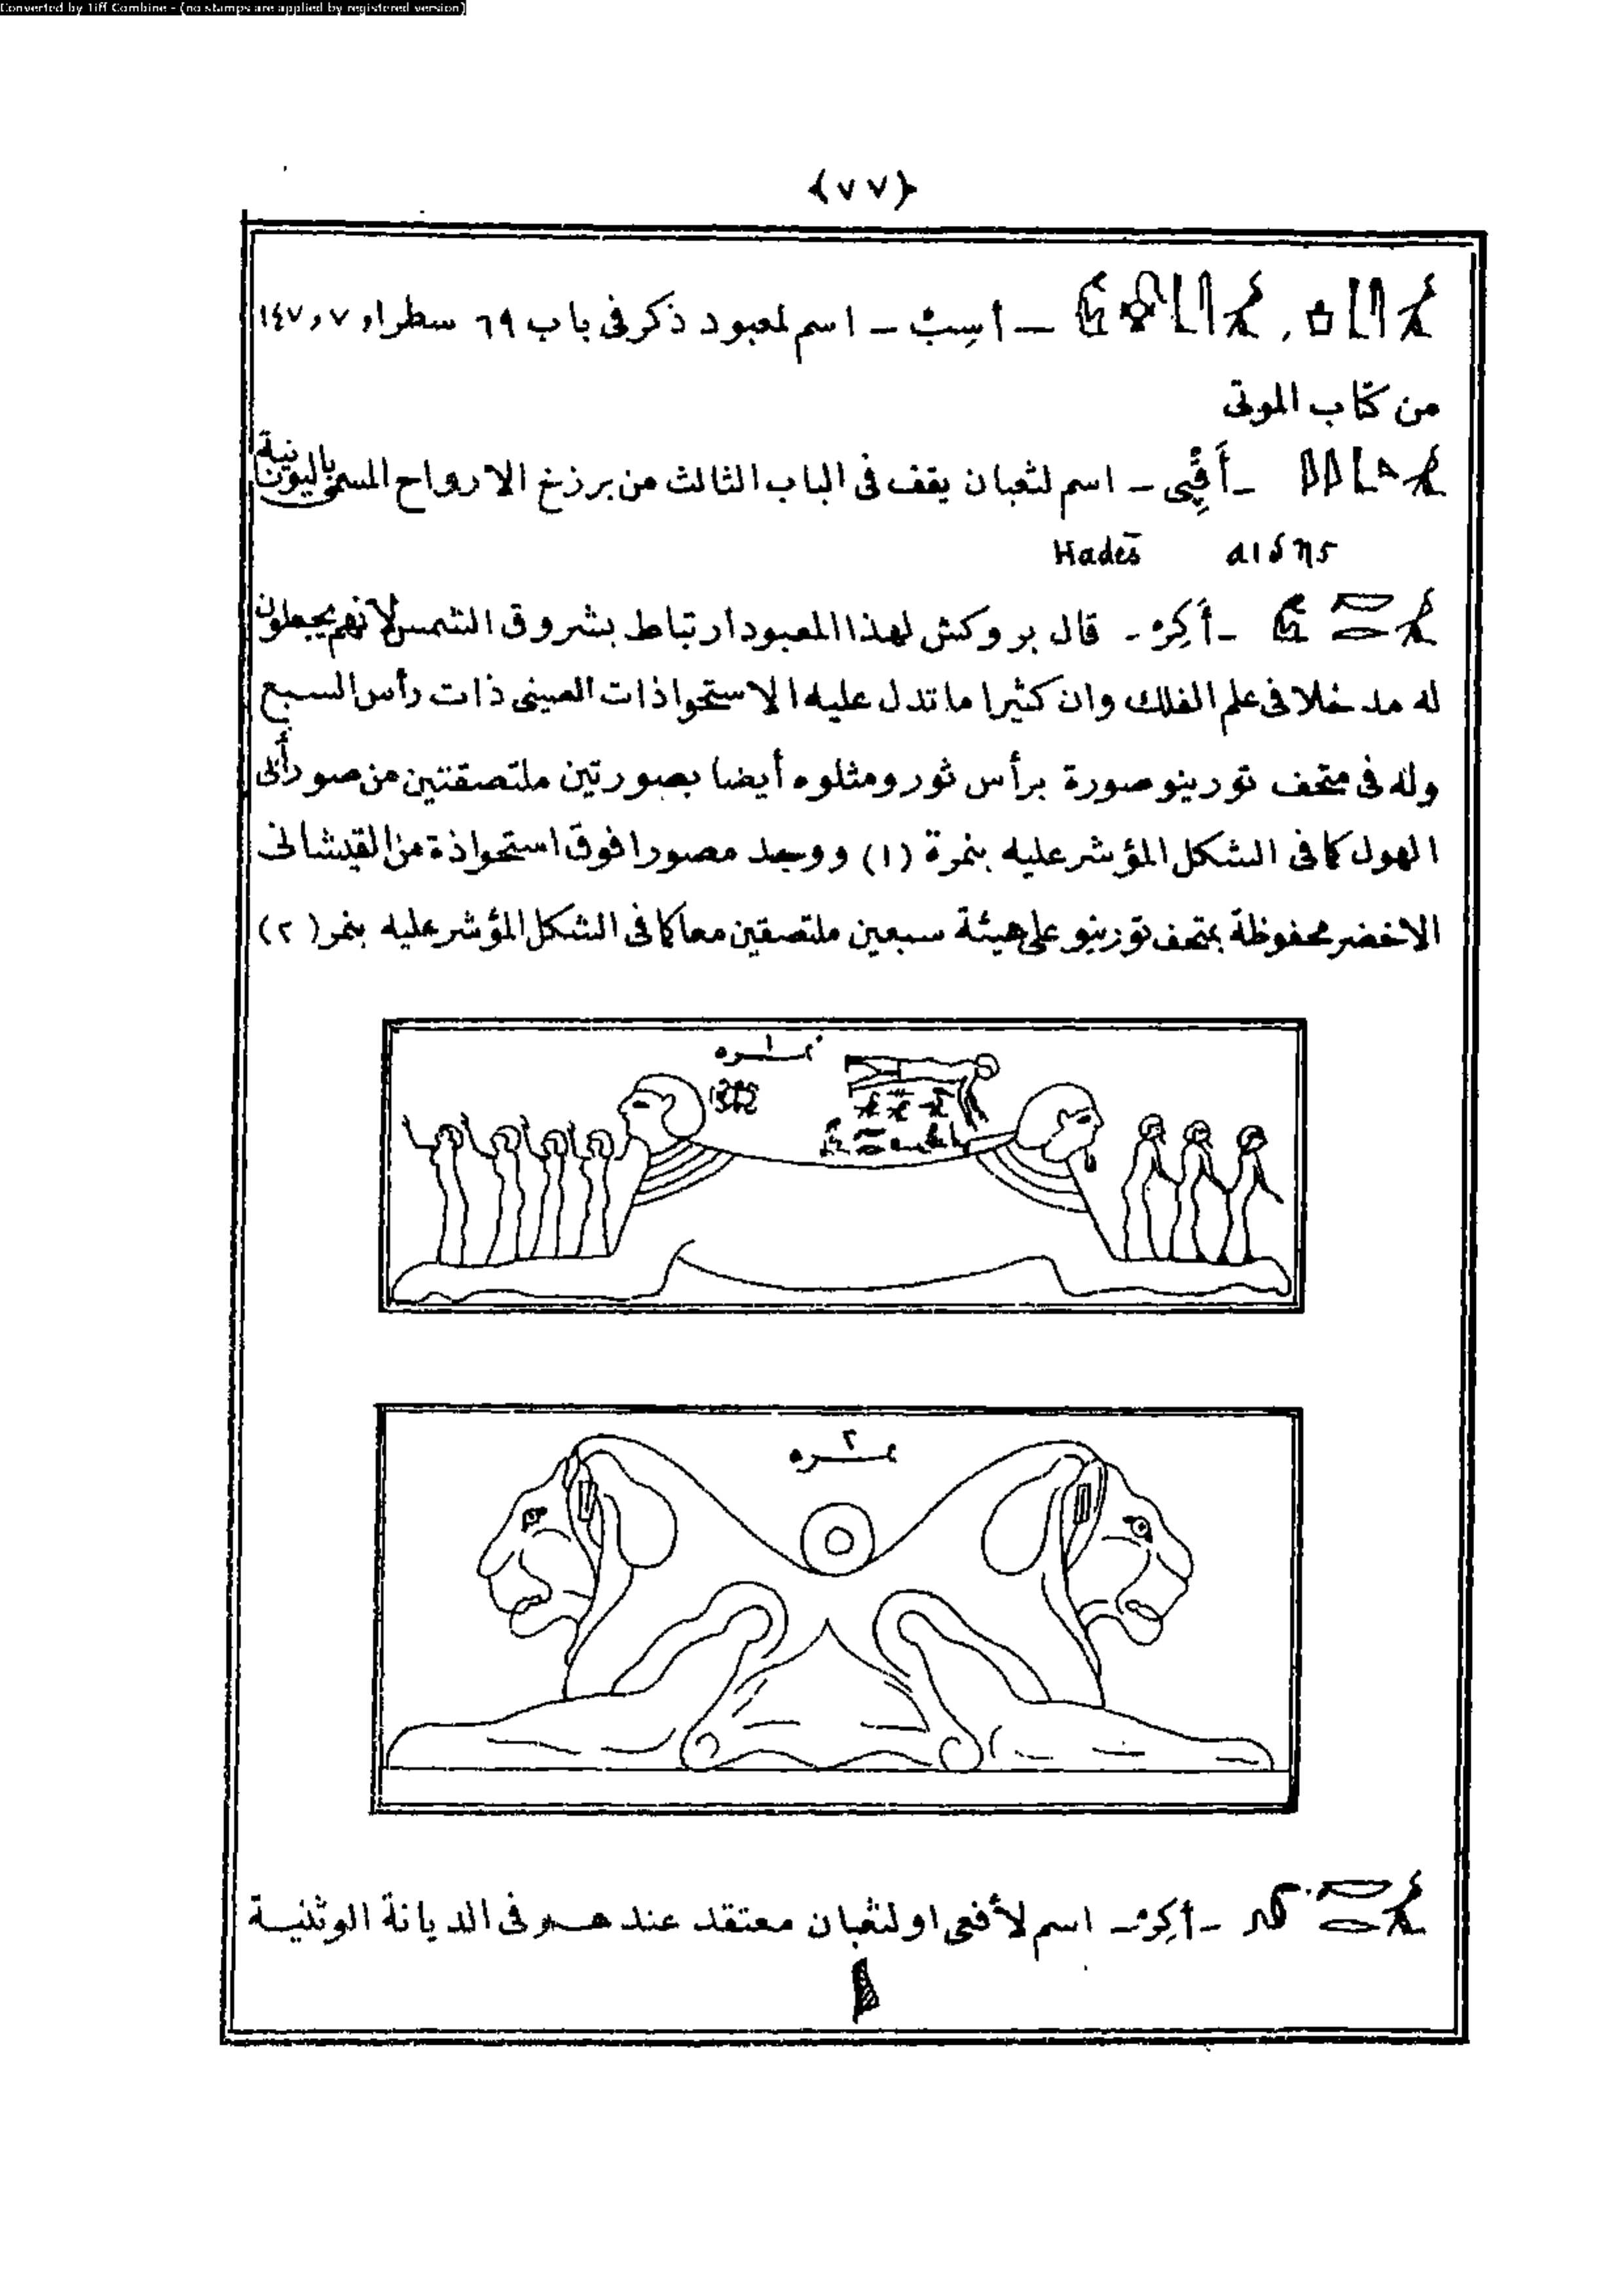 Converted by Tiff Combine - (no stamps are applied by registered version)
﴿٧٧﴾
ـ أسِبْ ـ اسم لمعبود ذكر فى باب ٦٩ سطر ا و ٧ و ١٤٧
من كتاب الموتى
ـ أَقِّى ـ اسم لثعبان يقف فى الباب الثالث من برزخ الارواح المسمى باليونانية
Hadēs αιδης
ـ أَكِرْ ـ قال بروكش لهذا المعبود ارتباط بشروق الشمس لانهم يجعلون
له مدخلا فى علم الفلك وان كثيرا ما تدل عليه الاستحواذات الصينى ذات رأس السبع
وله فى متحف تورينو صورة برأس ثور ومثلوه أيضا بصورتين ملتصقتين من صور أبى
الهول كما فى الشكل المؤشر عليه بنمرة (١) ووجد مصورا فوق استحواذة من القيشانى
الاخضر محفوظة بمتحف تورينو على هيئة سبعين ملتصقين معا كما فى الشكل المؤشر عليه بنمر (٢)
نمره ١
نمره ٢
ـ أكِرْ ـ اسم لأفعى او لثعبان معتقد عندهم فى الديانة الوثنية